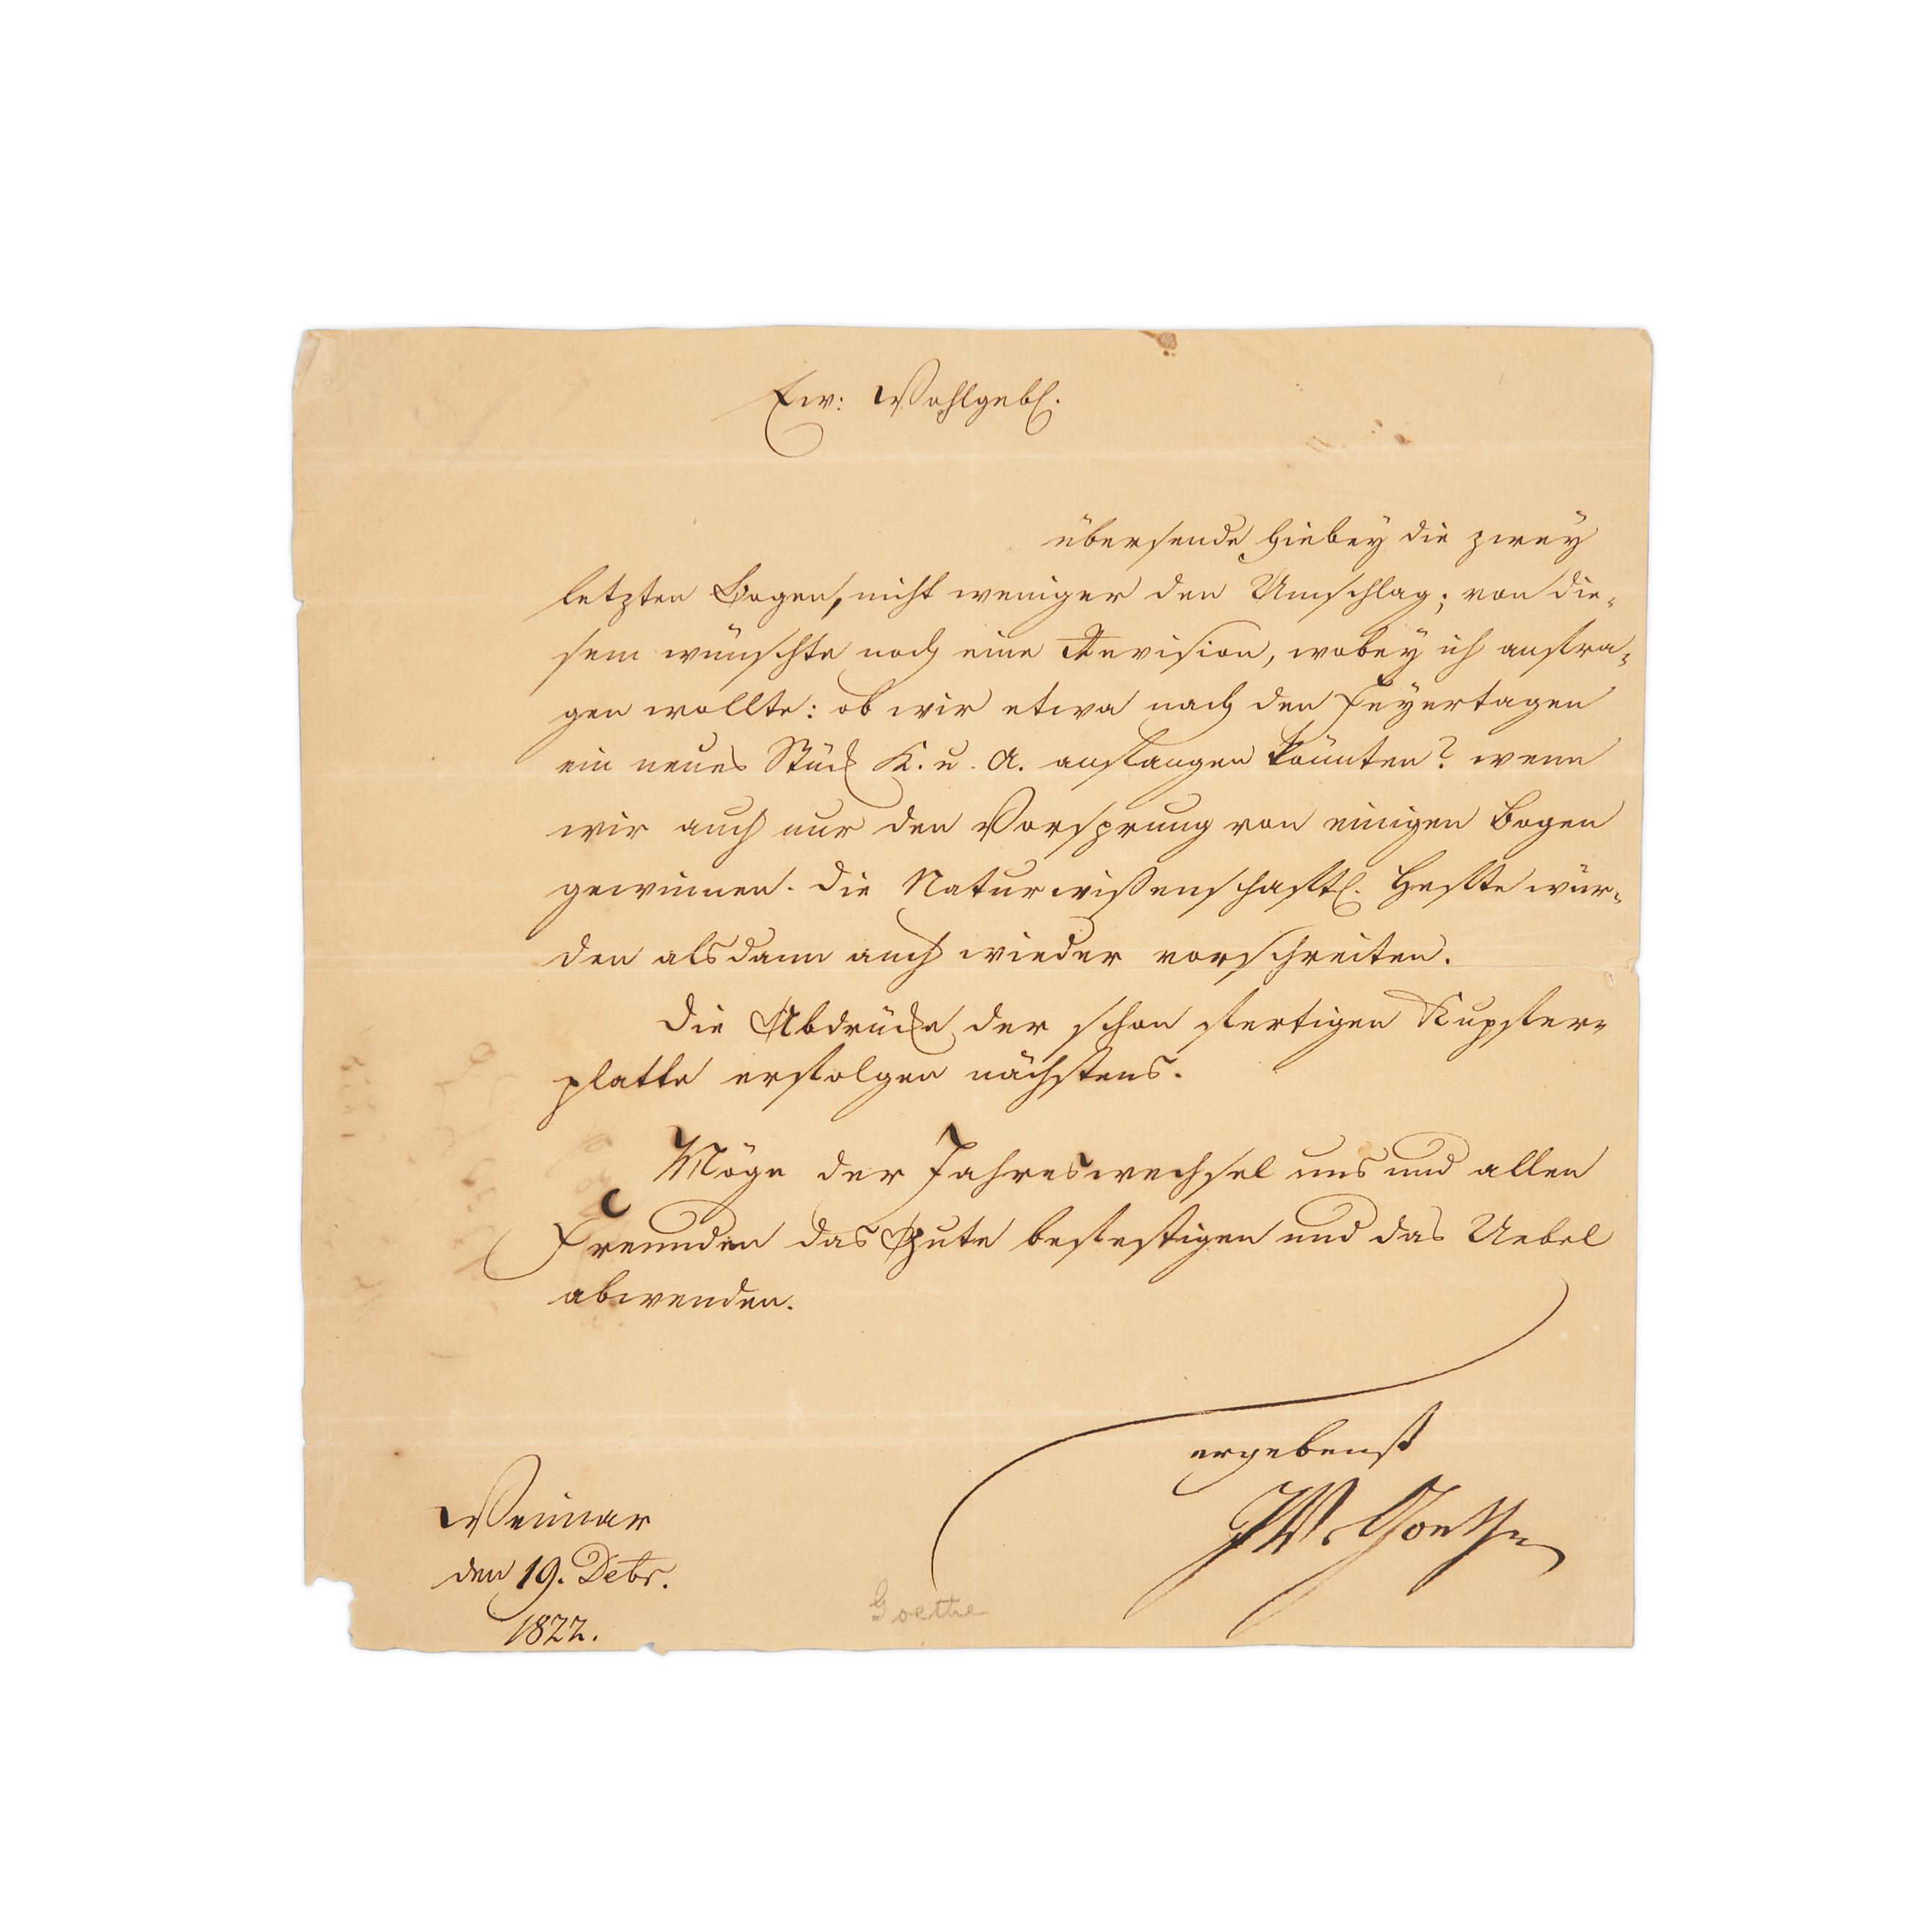 Ew: Wohlgeb.
übersende hiebey die zwey
letzten Bogen, nicht weniger den Umschlag; von die-
sem wünschte noch eine Revision, wobey ich anfra-
gen wollte: ob wir etwa nach den Feyertagen
ein neues Stück K. u. A. anfangen könnten? wenn
wir auch nur den Vorsprung von einigen Bogen
gewinnen. Die Naturwißenschaftl. Hefte wür-
den alsdann auch wieder vorschreiten.
Die Abdrücke der schon fertigen Kupfer-
platte erfolgen nächstens.
Möge der Jahreswechsel uns und allen
Freunden das Gute befestigen und das Uebel
abwenden.
ergebenst
JW. Goethe
Weimar
den 19. Debr.
1822.
Goethe